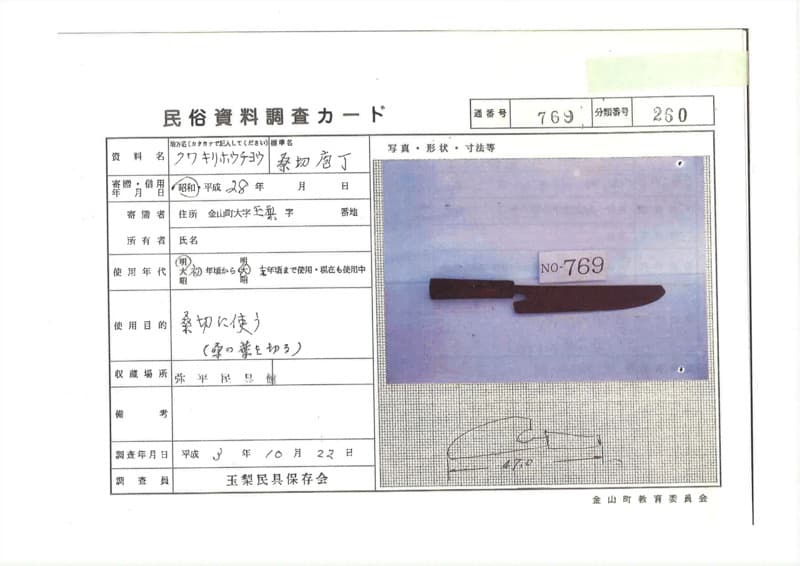 民俗資料調査カード
通番号 769 分類番号 260
資料名 地方名(カタカナで記入してください) クワキリホウチョウ 標準名 桑切庖丁
寄贈・借用年月日 昭和・平成 28年 月 日
寄贈者 住所 金山町大字玉梨字 番地
所有者 氏名
使用年代 明 大 昭 初年頃から 明 大 昭 年頃まで使用・現在も使用中
使用目的 桑切に使う
(桑の葉を切る)
収蔵場所 弥平民具館
備考
調査年月日 平成 3年 10月 22日
調査員 玉梨民具保存会
写真・形状・寸法等
NO-769
47.0
金山町教育委員会